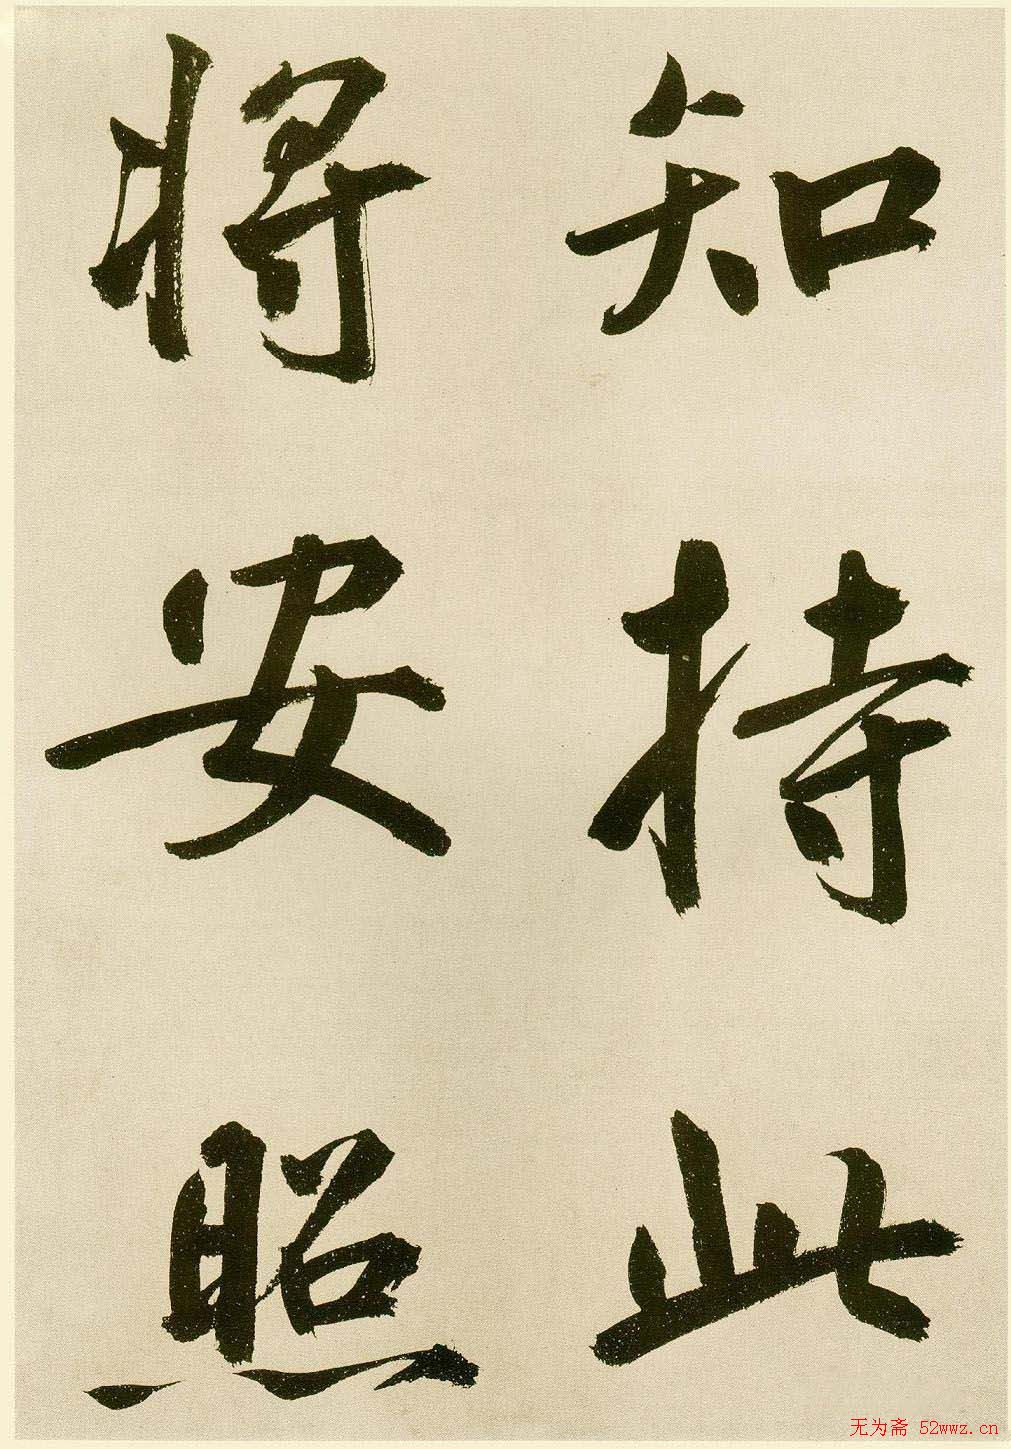 知持此
将安照
无为斋 52wwz.cn